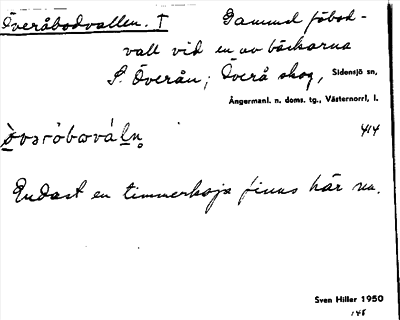 Överåbodvallen. † Gammal fäbod-
vall vid en av bäckarna
S. Överån; Överå skog, Sidensjö sn,
Ångermanl. n. doms. tg., Västernorrl. l.
414
Endast en timmerkoja finns här nu.
Sven Hiller 1950
148